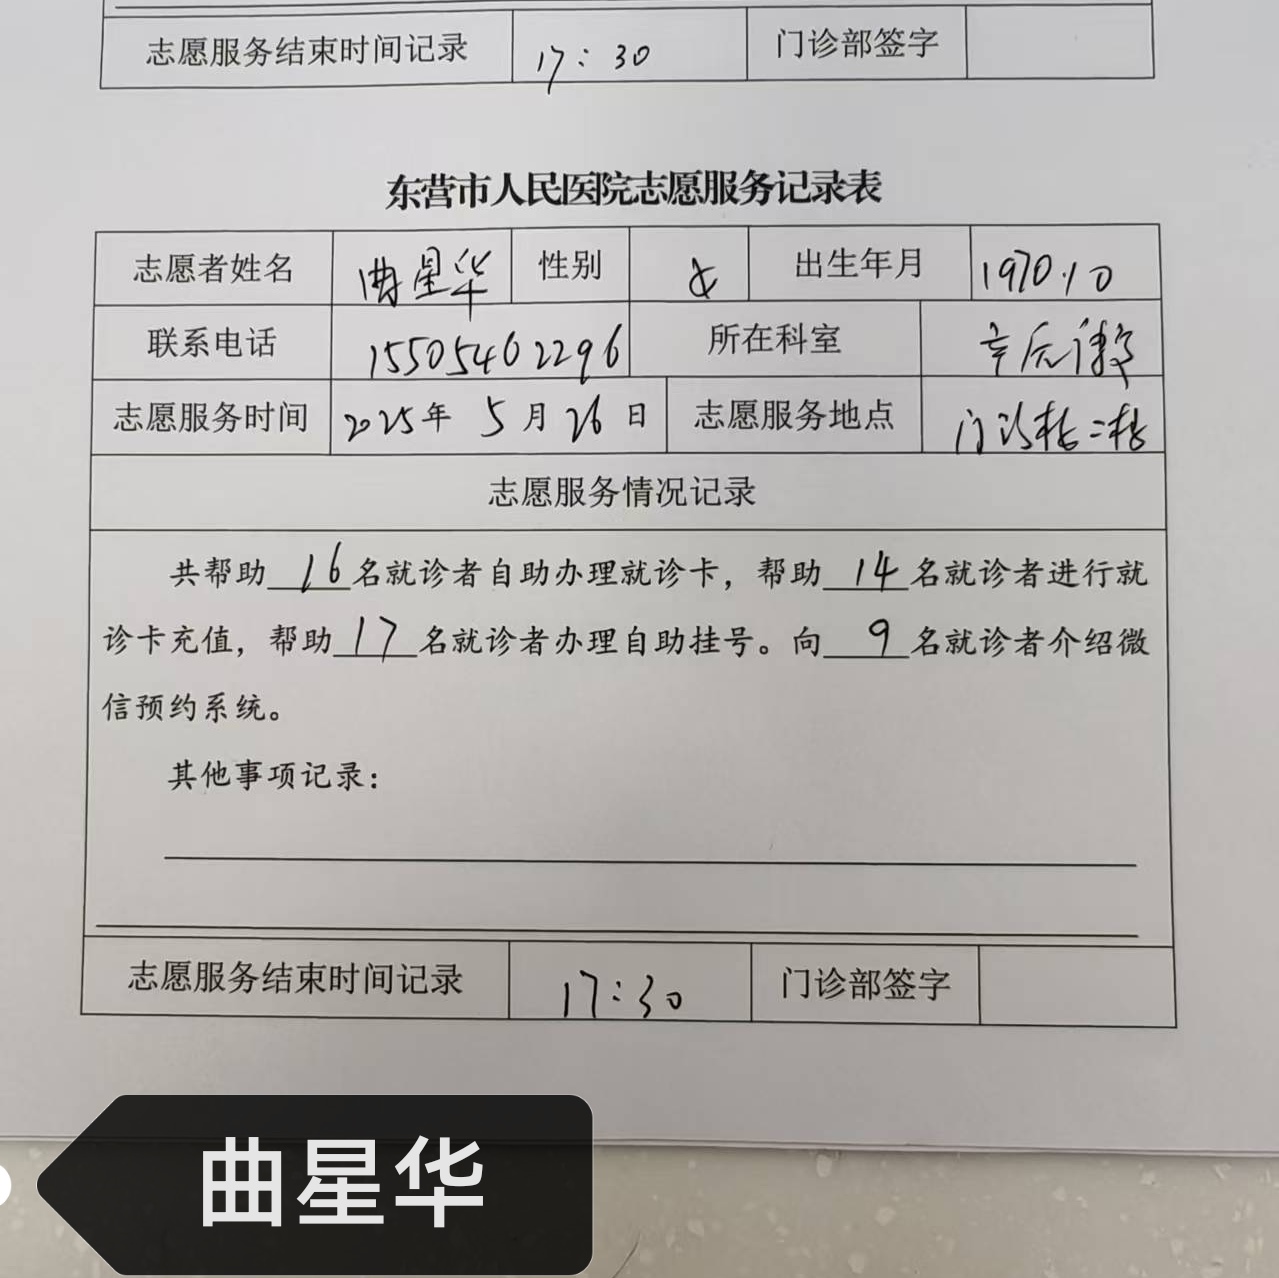 志愿服务结束时间记录 17:30 门诊部签字
东营市人民医院志愿服务记录表
志愿者姓名 曲星华 性别 女 出生年月 1970.10
联系电话 15505462296 所在科室
志愿服务时间 2025年 5月26日 志愿服务地点 门诊楼二楼
志愿服务情况记录
共帮助 16 名就诊者自助办理就诊卡，帮助 14 名就诊者进行就
诊卡充值，帮助 17 名就诊者办理自助挂号。向 9 名就诊者介绍微
信预约系统。
其他事项记录：
志愿服务结束时间记录 17:30 门诊部签字
曲星华